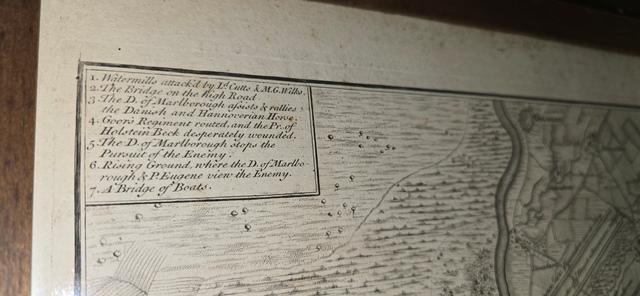 1. Watermills attack'd by Ld. Cutts & M.G. Wilks.
2. The Bridge on the high Road
3. The D. of Marlborough assists & rallies
the Danish and Hannoverian Horse.
4. Goor's Regiment routed, and the Pr. of
Holstein Beck desperately wounded.
5. The D. of Marlborough stops the
Pursuit of the Enemy.
6. Rising Ground, where the D. of Marlbo
rough & P. Eugene view the Enemy.
7. A Bridge of Boats.